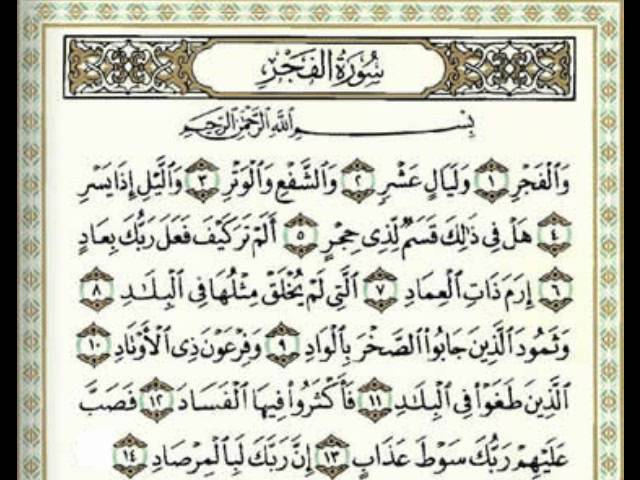 سُورَةُ الفَجْرِ
بِسْمِ اللَّهِ الرَّحْمَٰنِ الرَّحِيمِ
وَالْفَجْرِ ١ وَلَيَالٍ عَشْرٍ ٢ وَالشَّفْعِ وَالْوَتْرِ ٣ وَالَّيْلِ إِذَا يَسْرِ
٤ هَلْ فِي ذَٰلِكَ قَسَمٌ لِّذِي حِجْرٍ ٥ أَلَمْ تَرَ كَيْفَ فَعَلَ رَبُّكَ بِعَادٍ
٦ إِرَمَ ذَاتِ الْعِمَادِ ٧ الَّتِي لَمْ يُخْلَقْ مِثْلُهَا فِي الْبِلَٰدِ ٨
وَثَمُودَ الَّذِينَ جَابُوا الصَّخْرَ بِالْوَادِ ٩ وَفِرْعَوْنَ ذِي الْأَوْتَادِ ١٠
الَّذِينَ طَغَوْا فِي الْبِلَٰدِ ١١ فَأَكْثَرُوا فِيهَا الْفَسَادَ ١٢ فَصَبَّ
عَلَيْهِمْ رَبُّكَ سَوْطَ عَذَابٍ ١٣ إِنَّ رَبَّكَ لَبِالْمِرْصَادِ ١٤